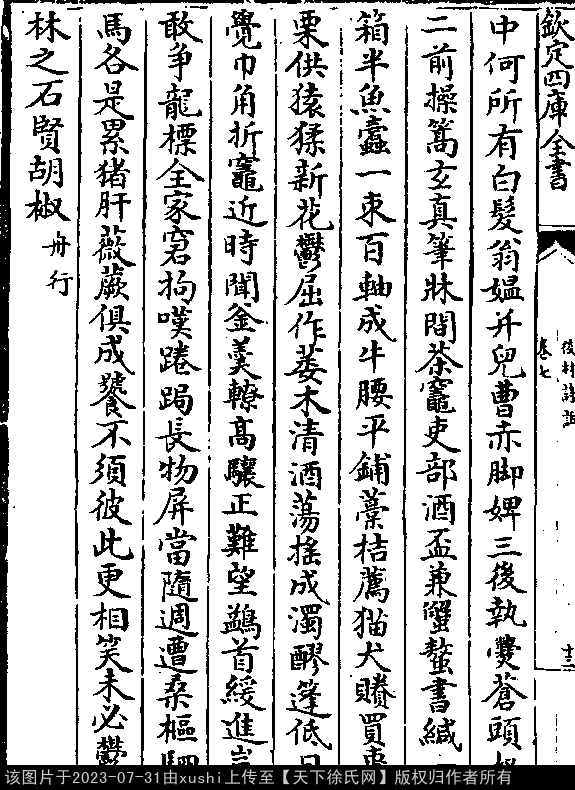 欽定四庫全書
後村詩話
卷七
十三
中何所有白髮翁媼并兒曹赤脚婢三後執爨蒼頭奴
二前操篙玄真筆牀閒茶竈吏部酒盃兼蟹螯書緘
箱半魚蠹一束百軸成牛腰平鋪藁秸薦猫犬賸買棗
栗供猿猱新花鬱屈作萎木清酒蕩搖成濁醪篷低日
覺巾角折竈近時聞釜羹轑高驤正難望鷁首緩進豈
敢爭龍標全家窘拘嘆踡跼長物屏當隨週遭桑樞駟
馬各是累猪肝薇蕨俱成饕不須彼此更相笑未必鬱
林之石賢胡椒舟行
该图片于2023-07-31由xushi上传至【天下徐氏网】版权归作者所有